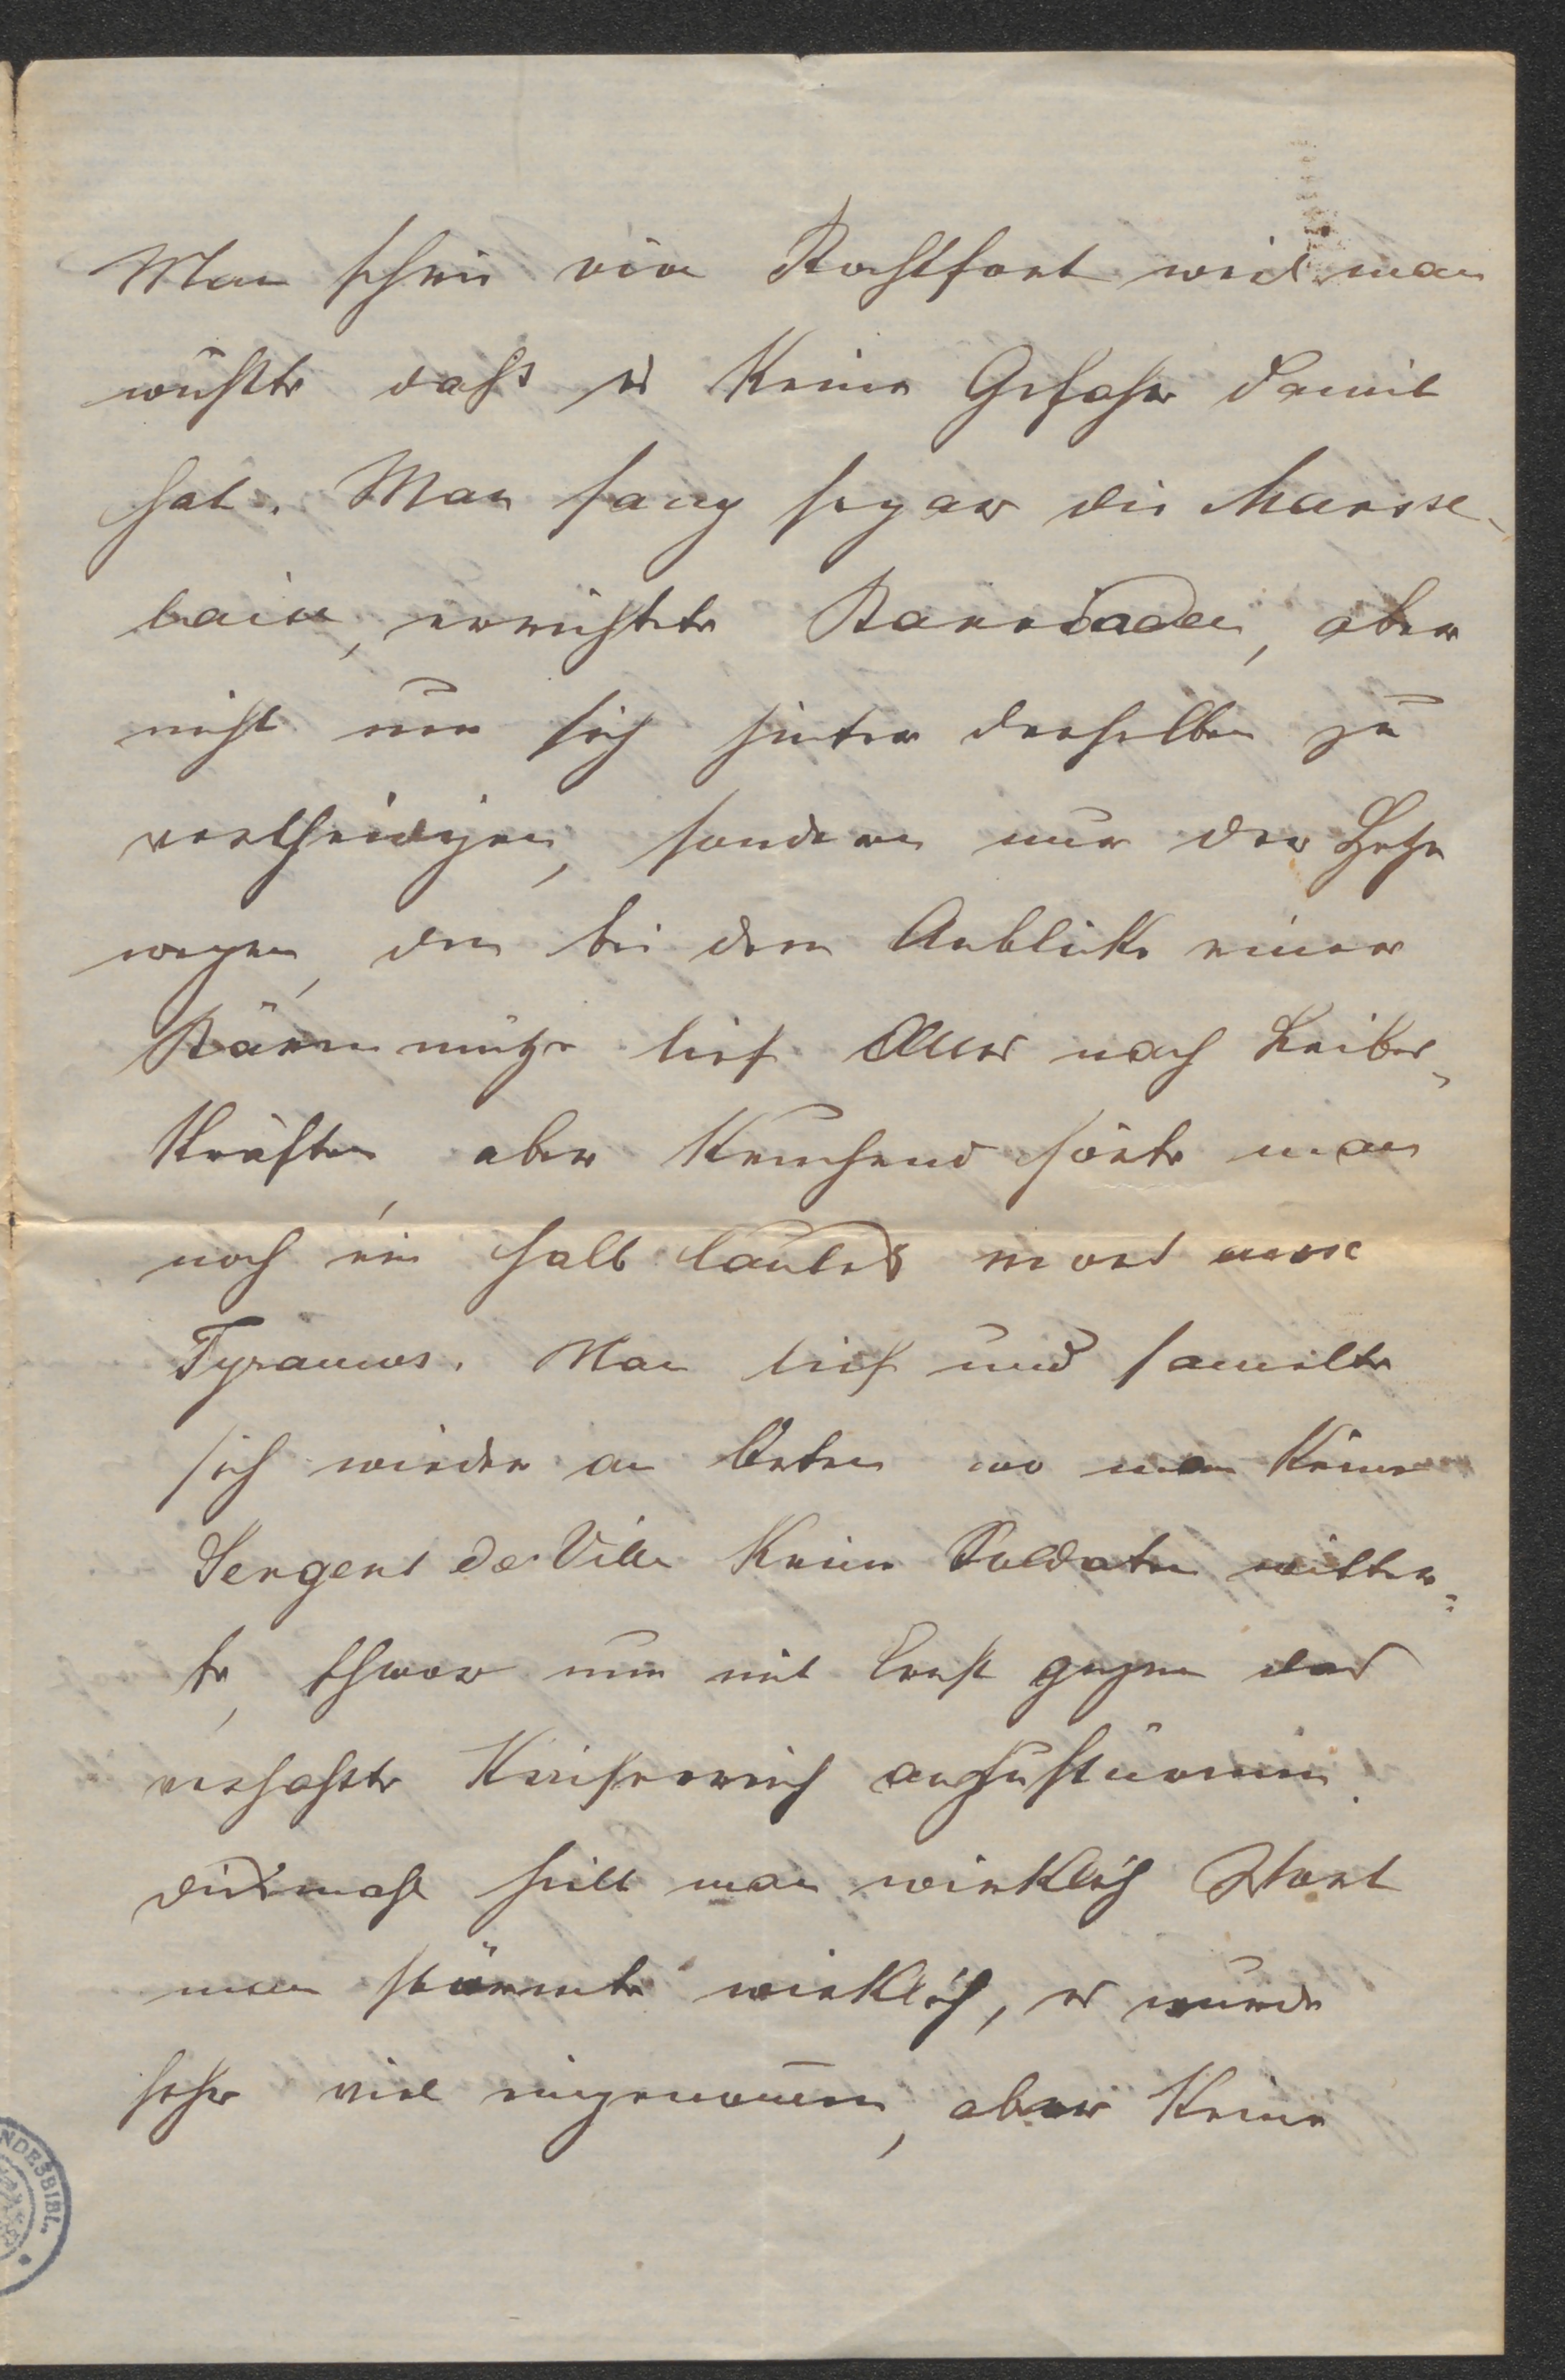 Man schrie viva Rochfort weil man
wußte daß es keine Gefahr damit
hat. Man sang sogar die Marsse-
laise, errichtete Barrikaden, aber
nicht um sich hinter denselben zu
vertheidigen, sondern nur der Hetze
wegen, den bei dem Anblicke einer
Bärenmütze lief Alles nach Leibes-
kräften, aber keuchend hörte man
noch ein halb lautes mort
Tyrannos. Man lief und samelte
sich wieder an Orten wo man keine
Sergent de Ville keine Soldaten witter-
te, schwor nun mit Ernst gegen das
verhaßte Kaiserreich anzustürmen.
diesmahl hielt man wirklich Wort
man stürmte wirklich, es wurde
sehr viel eingenommen, aber keine
NDESBIBL.